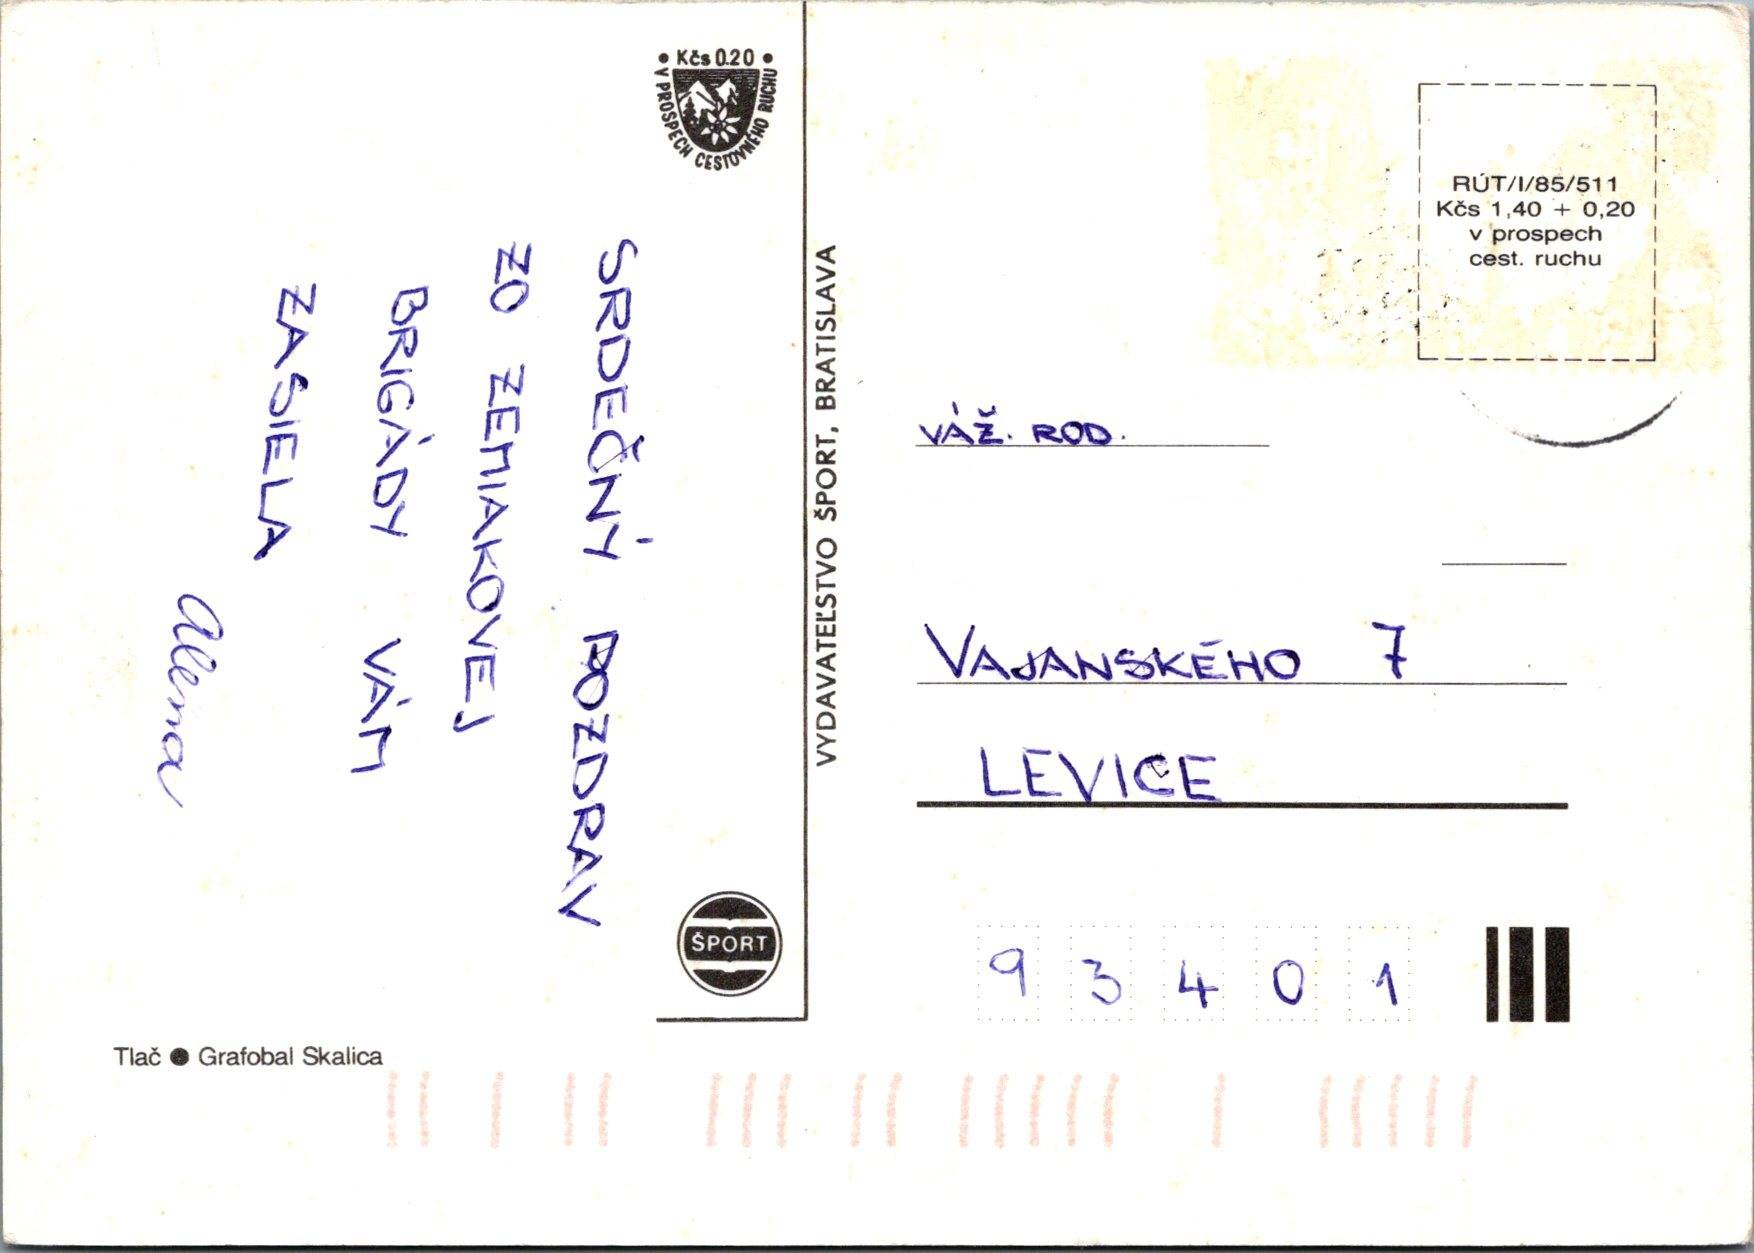 • Kčs 0.20 •
V PROSPECH CESTOVNÉHO RUCHU
SRDEČNÝ POZDRAV
ZO ZEMIAKOVEJ
BRIGÁDY VÁM
ZASIELA
Alena
ŠPORT
Tlač ● Grafobal Skalica
VYDAVATEĽSTVO ŠPORT, BRATISLAVA
RÚT/I/85/511
Kčs 1,40 + 0,20
v prospech
cest. ruchu
VÁŽ. ROD.
VAJANSKÉHO 7
LEVICE
9 3 4 0 1